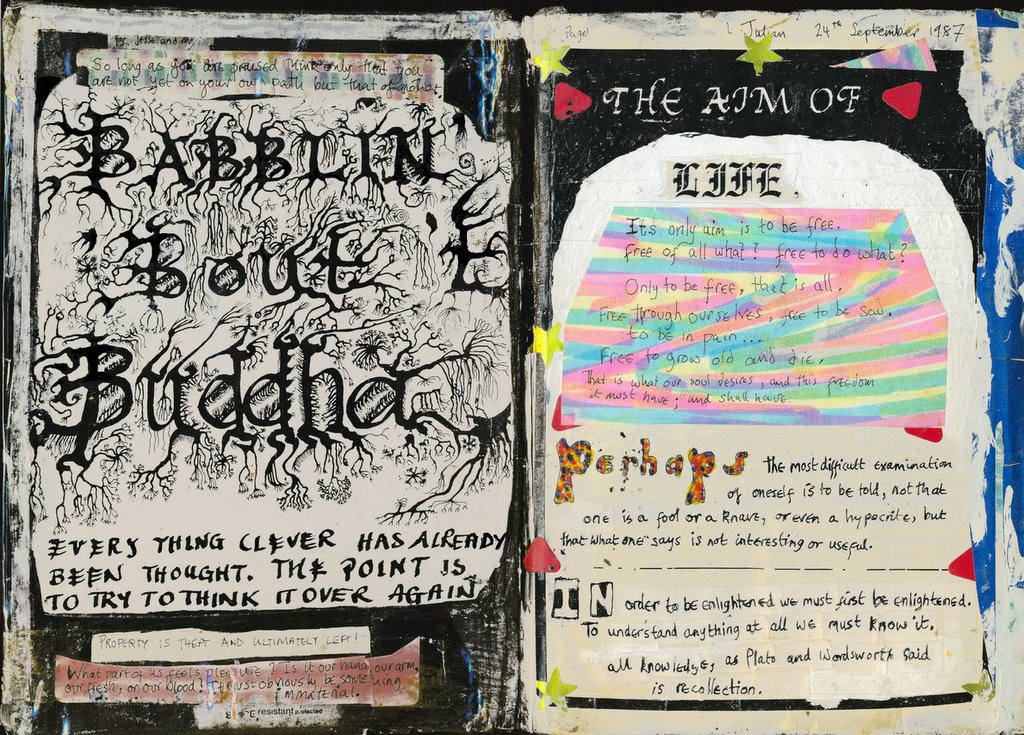 for Jesse and my
So long as you are praised think only that you
are not yet on your own path but that of another
BABBLIN'
'Bout 'E
Buddha
EVERY THING CLEVER HAS ALREADY
BEEN THOUGHT. THE POINT IS
TO TRY TO THINK IT OVER AGAIN
PROPERTY IS THEFT AND ULTIMATELY LEFT!
What part of us feels pleasure? Is it our hand, our arm,
our flesh, or our blood? It must obviously be something
immaterial.
resistant protected
Page 1
Julian 24th September 1987
THE AIM OF
LIFE.
It's only aim is to be free.
Free of all what? free to do what?
Only to be free, that is all.
Free through ourselves, free to be sad.
to be in pain...
Free to grow old and die.
That is what our soul desires, and this freedom
it must have; and shall have.
Perhaps the most difficult examination
of oneself is to be told, not that
one is a fool or a knave, or even a hypocrite, but
that what one says is not interesting or useful.
IN order to be enlightened we must first be enlightened.
To understand anything at all we must know it.
all knowledge, as Plato and Wordsworth said
is recollection.